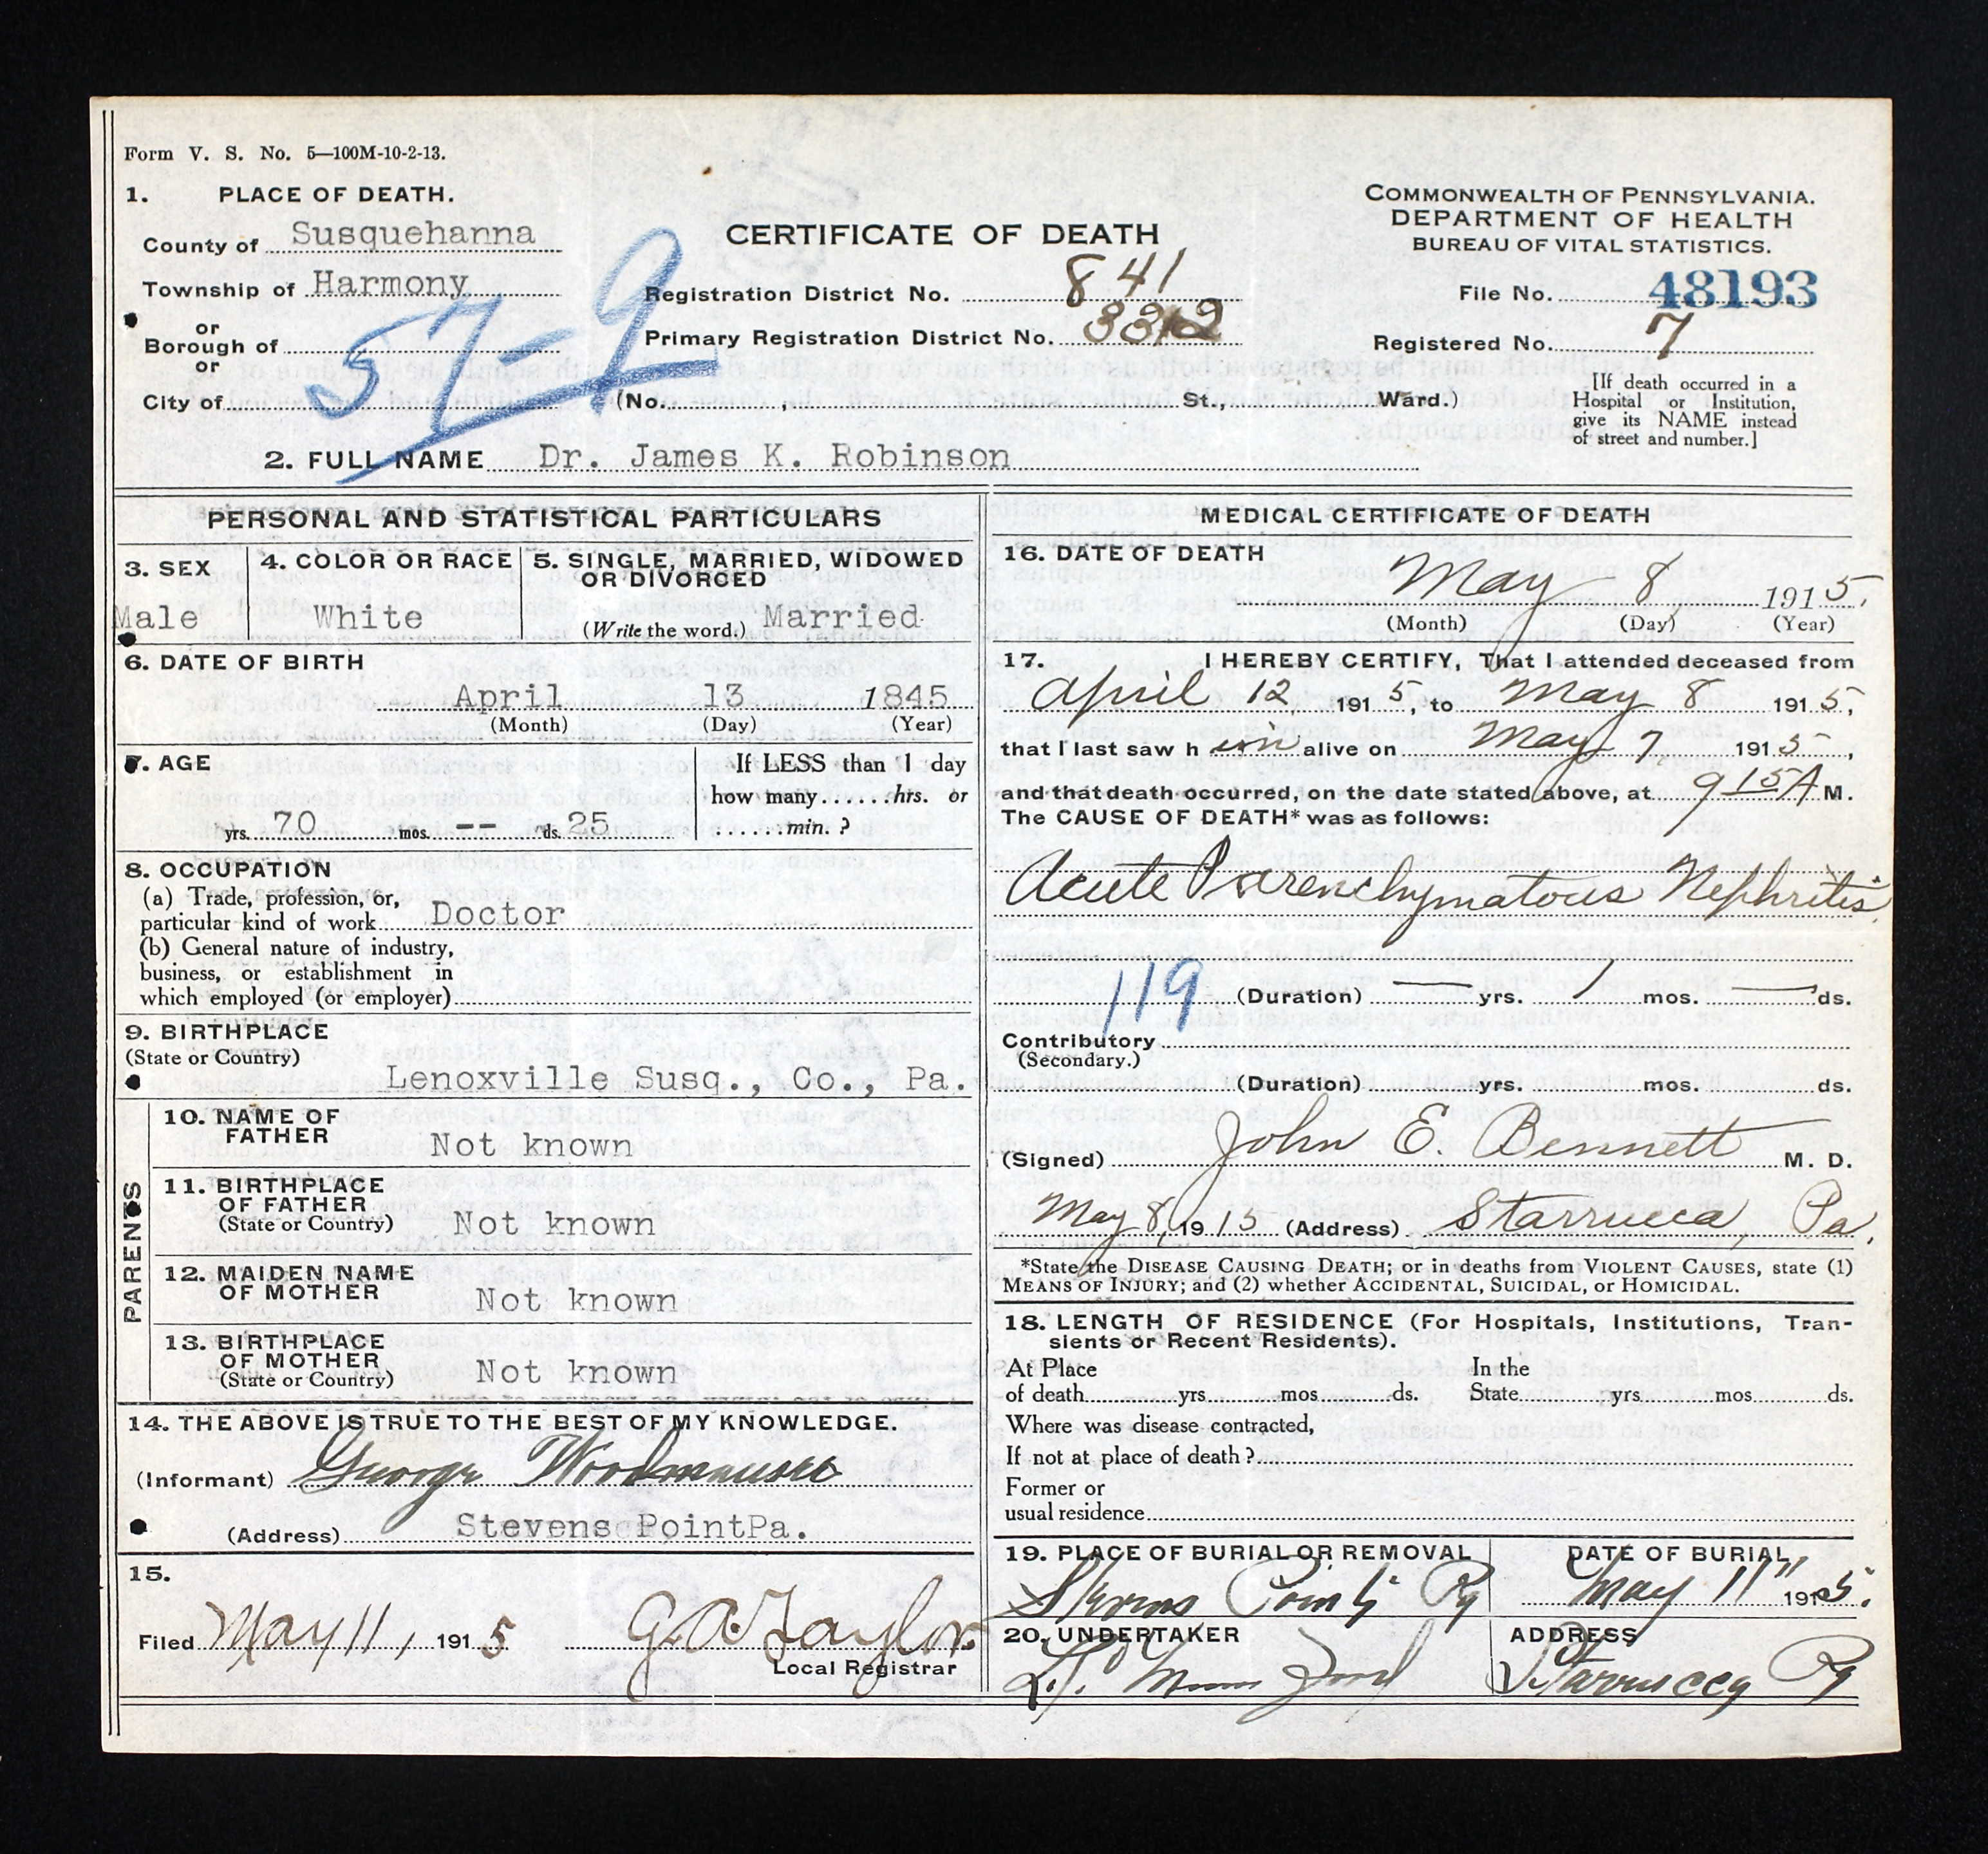 Form V. S. No. 5—100M-10-2-13.
1. PLACE OF DEATH.
County of Susquehanna
Township of Harmony
or
Borough of
or
City of
57-9
CERTIFICATE OF DEATH
Registration District No. 841
Primary Registration District No. 3312
(No. , St., Ward.)
COMMONWEALTH OF PENNSYLVANIA.
DEPARTMENT OF HEALTH
BUREAU OF VITAL STATISTICS.
File No. 48193
Registered No. 7
[If death occurred in a
Hospital or Institution,
give its NAME instead
of street and number.]
2. FULL NAME Dr. James K. Robinson
PERSONAL AND STATISTICAL PARTICULARS
3. SEX
Male
4. COLOR OR RACE
White
5. SINGLE, MARRIED, WIDOWED
OR DIVORCED
(Write the word.) Married
6. DATE OF BIRTH
April 13 1845
(Month) (Day) (Year)
7. AGE
yrs. 70 mos. -- ds. 25
If LESS than 1 day
how many......hrs. or
......min. ?
8. OCCUPATION
(a) Trade, profession, or,
particular kind of work Doctor
(b) General nature of industry,
business, or establishment in
which employed (or employer)
9. BIRTHPLACE
(State or Country)
Lenoxville Susq., Co., Pa.
PARENTS
10. NAME OF
FATHER Not known
11. BIRTHPLACE
OF FATHER
(State or Country) Not known
12. MAIDEN NAME
OF MOTHER Not known
13. BIRTHPLACE
OF MOTHER
(State or Country) Not known
14. THE ABOVE IS TRUE TO THE BEST OF MY KNOWLEDGE.
(Informant) George Woodmansee
(Address) Stevens PointPa.
15.
Filed May 11, 1915 G.A. Taylor
Local Registrar
MEDICAL CERTIFICATE OF DEATH
16. DATE OF DEATH
May 8, 1915.
(Month) (Day) (Year)
17. I HEREBY CERTIFY, That I attended deceased from
April 12, 1915, to May 8 1915,
that I last saw him alive on May 7, 1915,
and that death occurred, on the date stated above, at 9 15 A M.
The CAUSE OF DEATH* was as follows:
Acute Parenchymatous Nephritis
119
(Duration) — yrs. 1 mos. — ds.
Contributory
(Secondary.)
(Duration) yrs. mos. ds.
(Signed) John E. Bennett M. D.
May 8, 1915 (Address) Starrucca, Pa.
*State the DISEASE CAUSING DEATH; or in deaths from VIOLENT CAUSES, state (1)
MEANS OF INJURY; and (2) whether ACCIDENTAL, SUICIDAL, or HOMICIDAL.
18. LENGTH OF RESIDENCE (For Hospitals, Institutions, Tran-
sients or Recent Residents).
At Place In the
of death yrs mos ds. State yrs mos ds.
Where was disease contracted,
If not at place of death ?
Former or
usual residence
19. PLACE OF BURIAL OR REMOVAL
Stevens Point Pa
DATE OF BURIAL
May 11" 1915.
20. UNDERTAKER
ADDRESS
Starrucca Pa